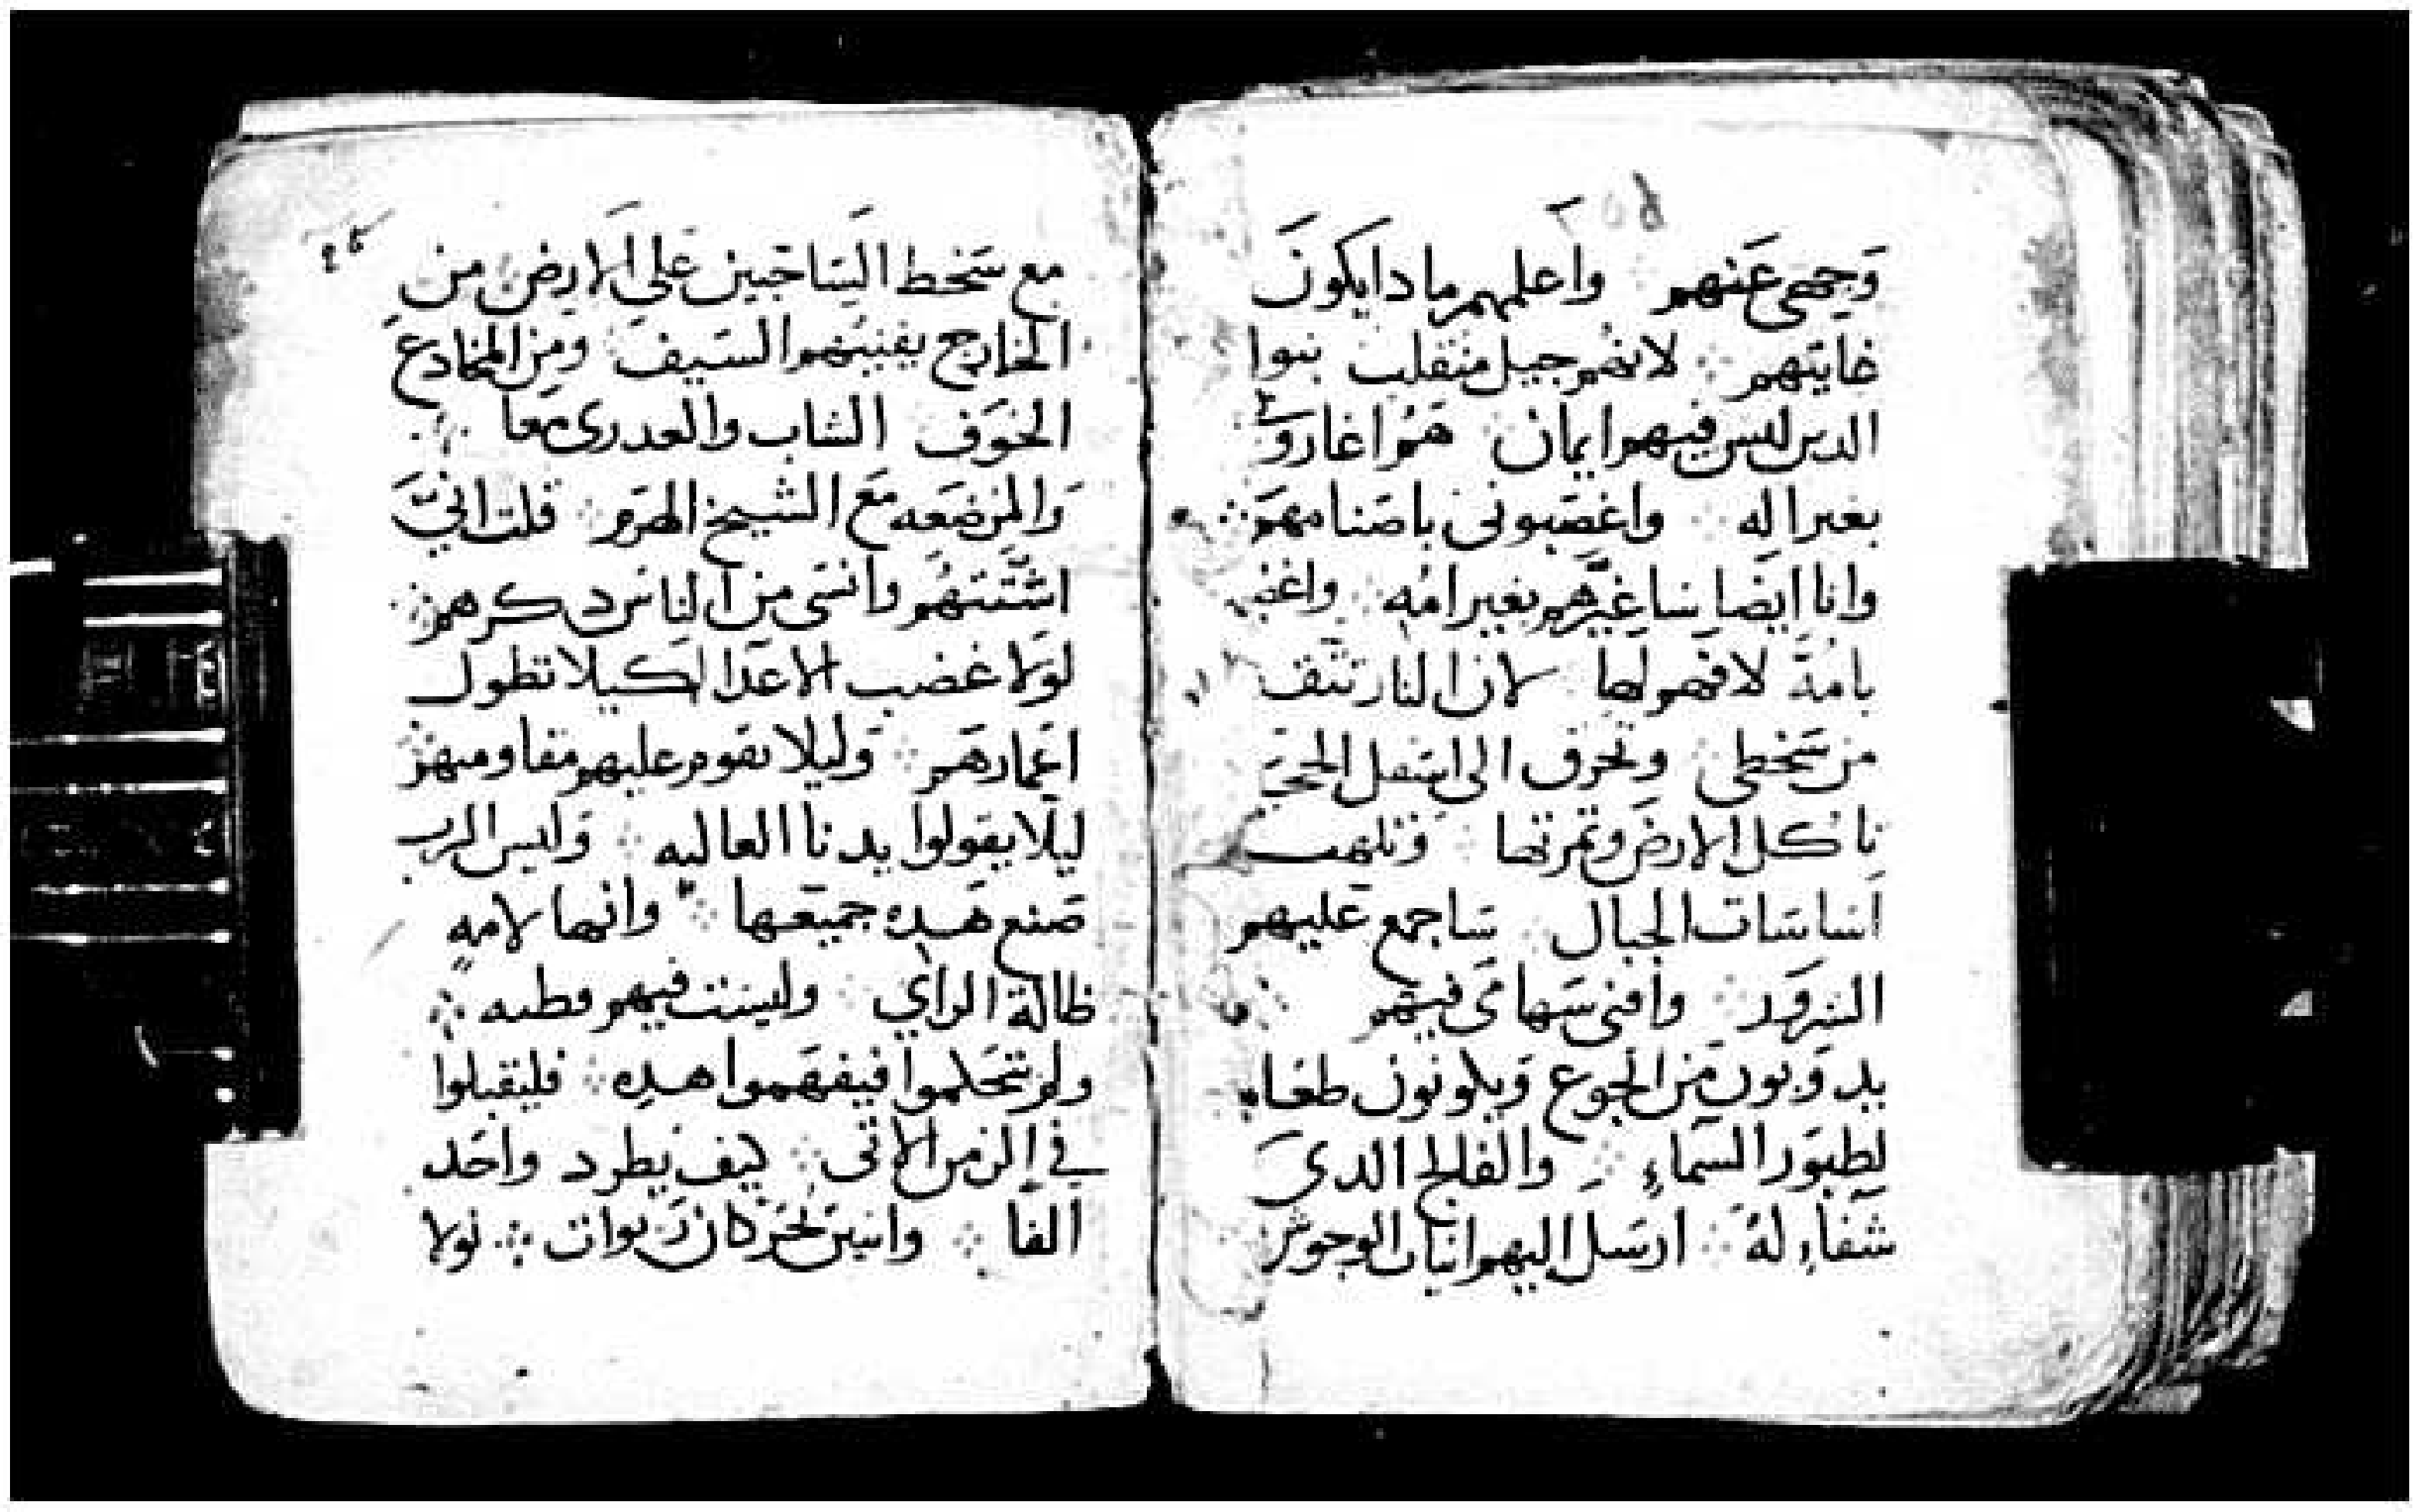 وجهى عنهم واعلمهم مادا يكون
غايتهم لانهم جيل منقلب بنوا
الدين ليس فيهم ايمان هم اغارو
بغير اله واغضبونى باصنامهم
وانا ايضا ساغيرهم بغير امه واغضبهم
بامة لا فهم لها لان النار تتقد
من سخطى وتحرق الى اسفل الجحيم
تاكل الارض وثمرتها وتلهب
اساسات الجبال ساجمع عليهم
الشرور وافنى سهامى فيهم
يدوبون من الجوع ويكونون طعام
لطيور السماء والفلج الدى
شفاء له ارسل اليهم انياب الوحوش
مع سخط الساحبين على الارض من
الخارج يفنيهم السيف ومن المخادع
الخوف الشاب والعدرى معا
والمرضعه مع الشيخ الهرم قلت انى
اشتتهم وانسى من الناس دكرهم
لولا غضب الاعدا لكيلا تطول
اعمارهم وليلا يقوم عليهم مقاومهم
ليلا يقولوا يدنا العاليه وليس الرب
صنع هده جميعها وانها لامه
ظالة الراي وليست فيهم فطنه
ولم تحكموا فيفهموا هده فليقبلوا
في الزمن الاتى كيف يطرد واحد
الفا واتنين يحركان ربوات لولا